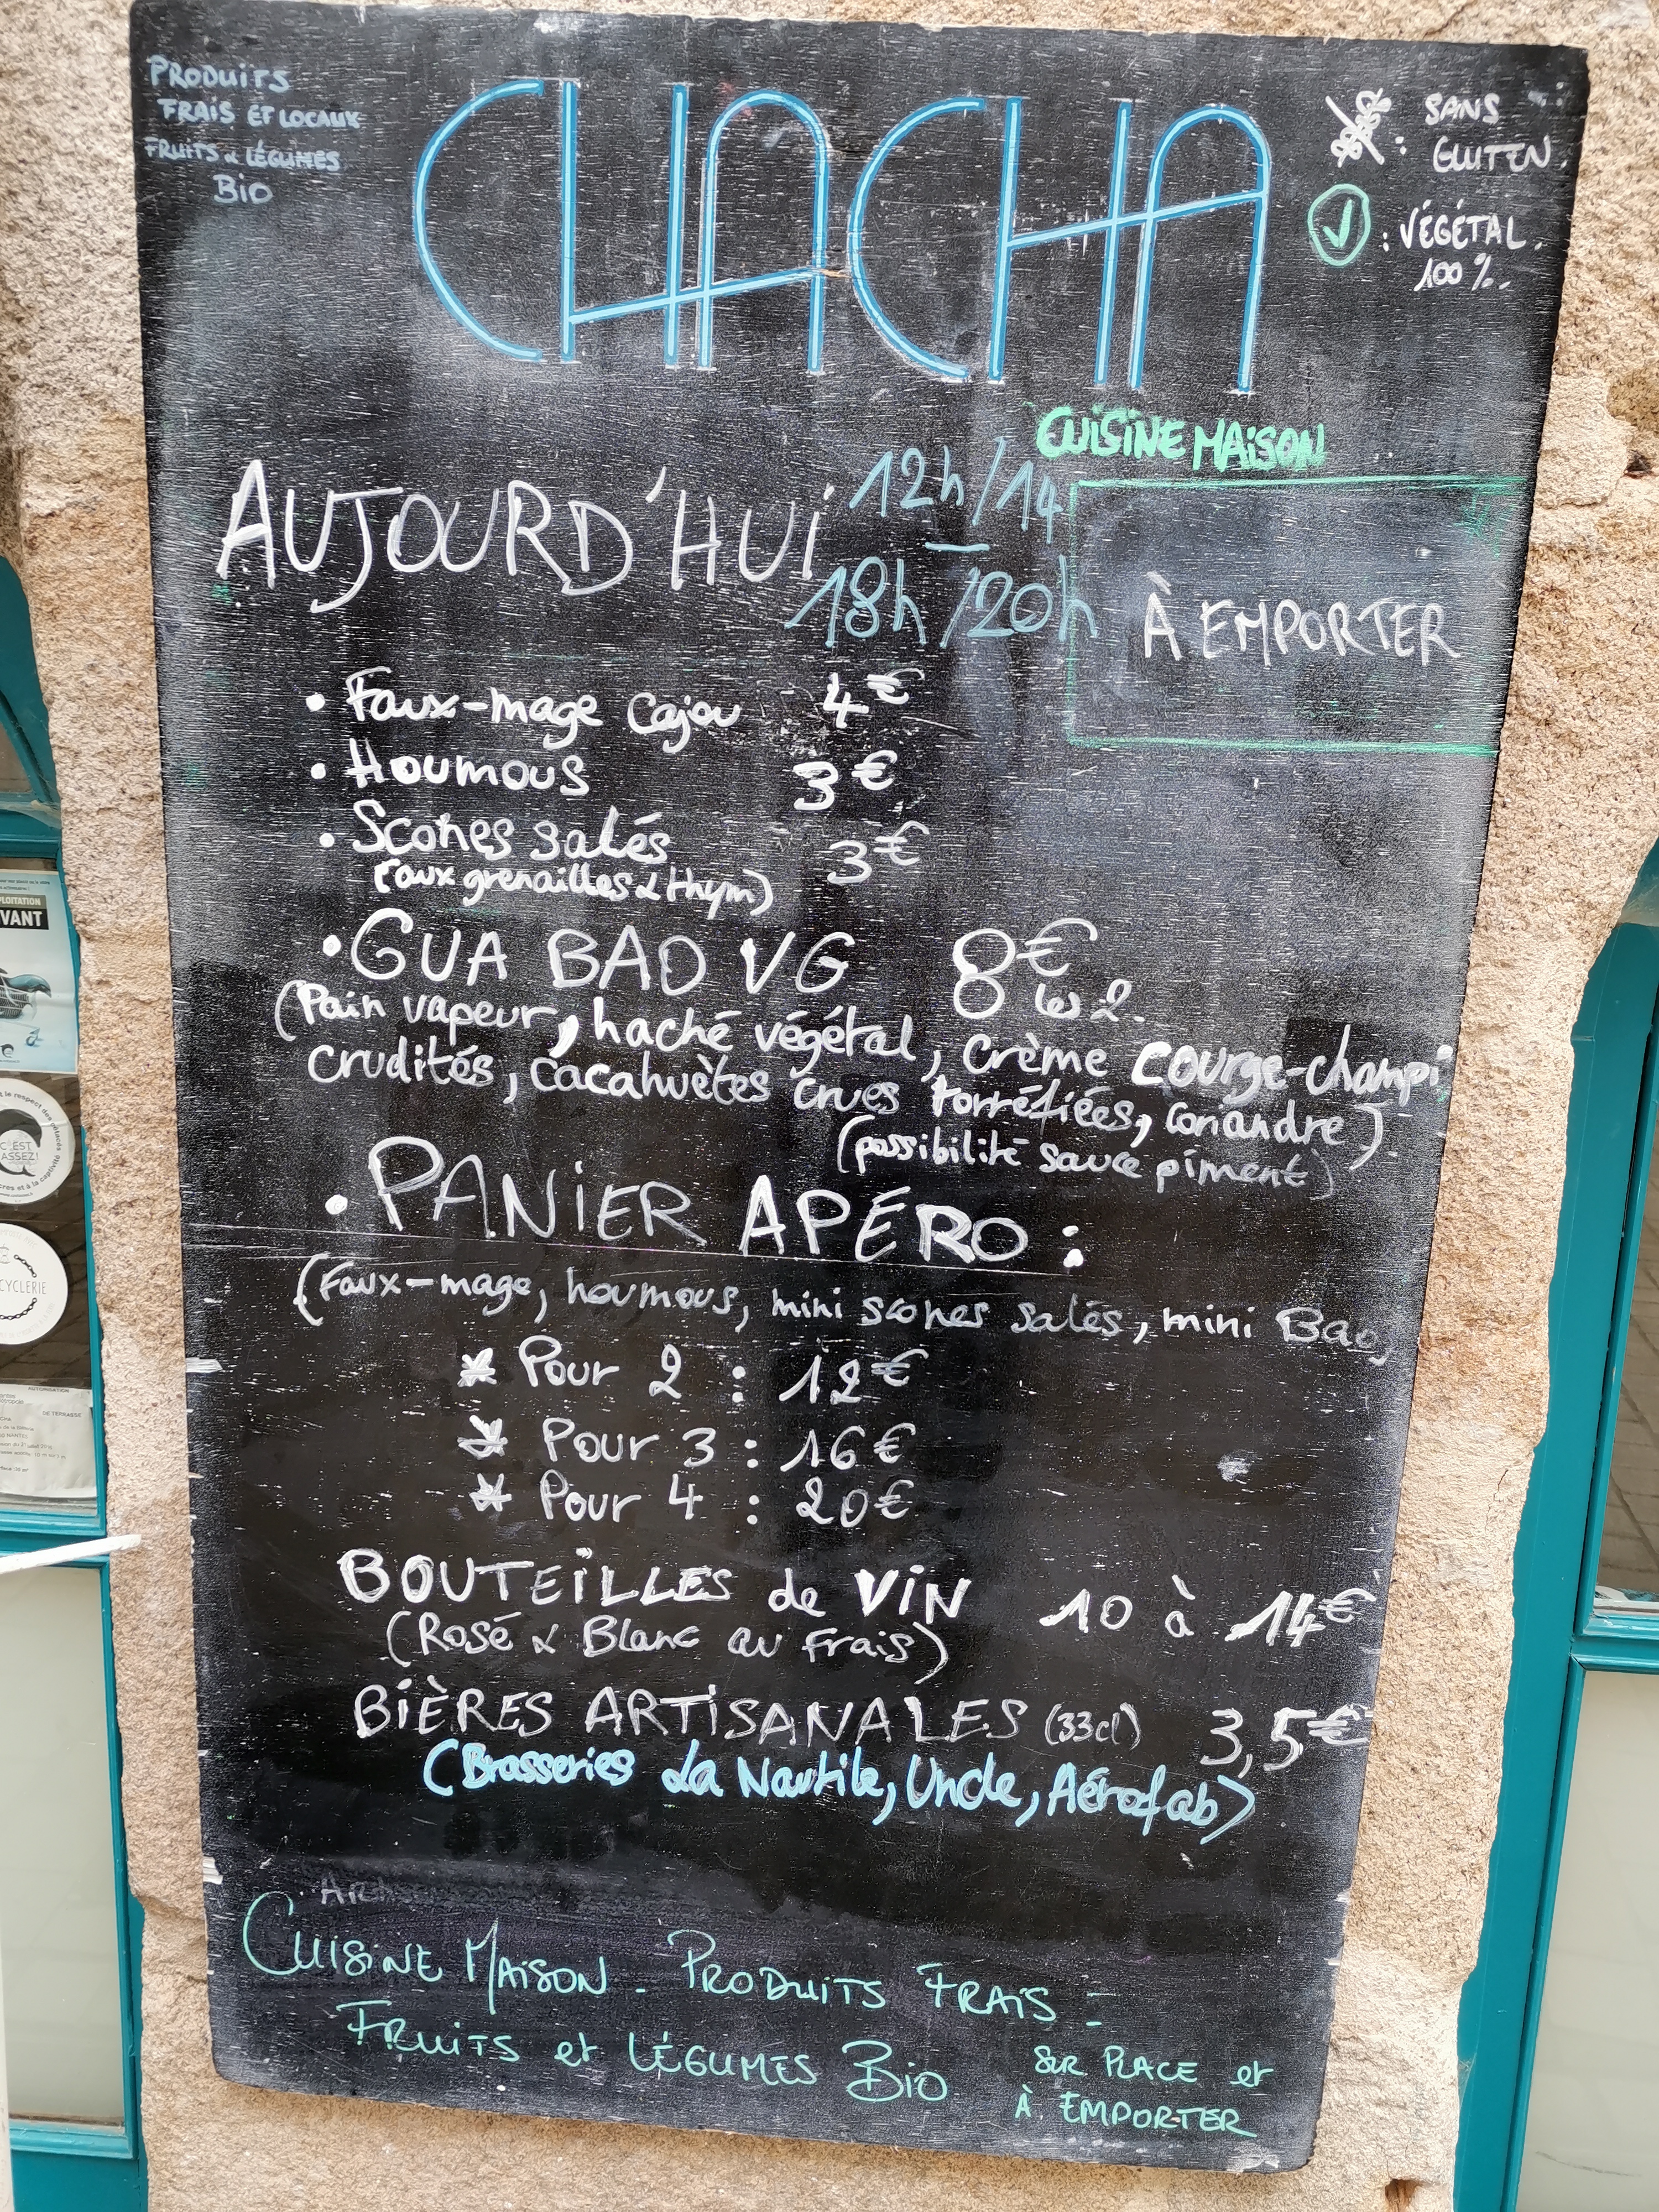 PRODUITS
FRAIS ET LOCAUX
FRUITS & LÉGUMES
BIO
CHACHA
: SANS
GLUTEN
: VÉGÉTAL
100 %.
CUISINE MAISON
AUJOURD'HUI
12h/14
18h/20h
À EMPORTER
• Faux-mage Cajou 4€
• Houmous 3€
• Scones salés 3€
(aux grenailles & thym)
• GUA BAO VG 8€
les 2.
(Pain vapeur, haché végétal, crème courge-champi,
crudités, cacahuètes crues torréfiées, coriandre)
(possibilité sauce piment)
• PANIER APÉRO :
(Faux-mage, houmous, mini scones salés, mini Bao)
* Pour 2 : 12€
* Pour 3 : 16€
* Pour 4 : 20€
BOUTEILLES de VIN 10 à 14€
(Rosé & Blanc au frais)
BIÈRES ARTISANALES (33cl) 3,5€
(Brasseries La Nautile, Uncle, Aérofab)
CUISINE MAISON - PRODUITS FRAIS -
FRUITS et LÉGUMES BIO
SUR PLACE et
À EMPORTER
VANT
C'EST
ASSEZ!
CYCLERIE
AUTORISATION
DE TERRASSE